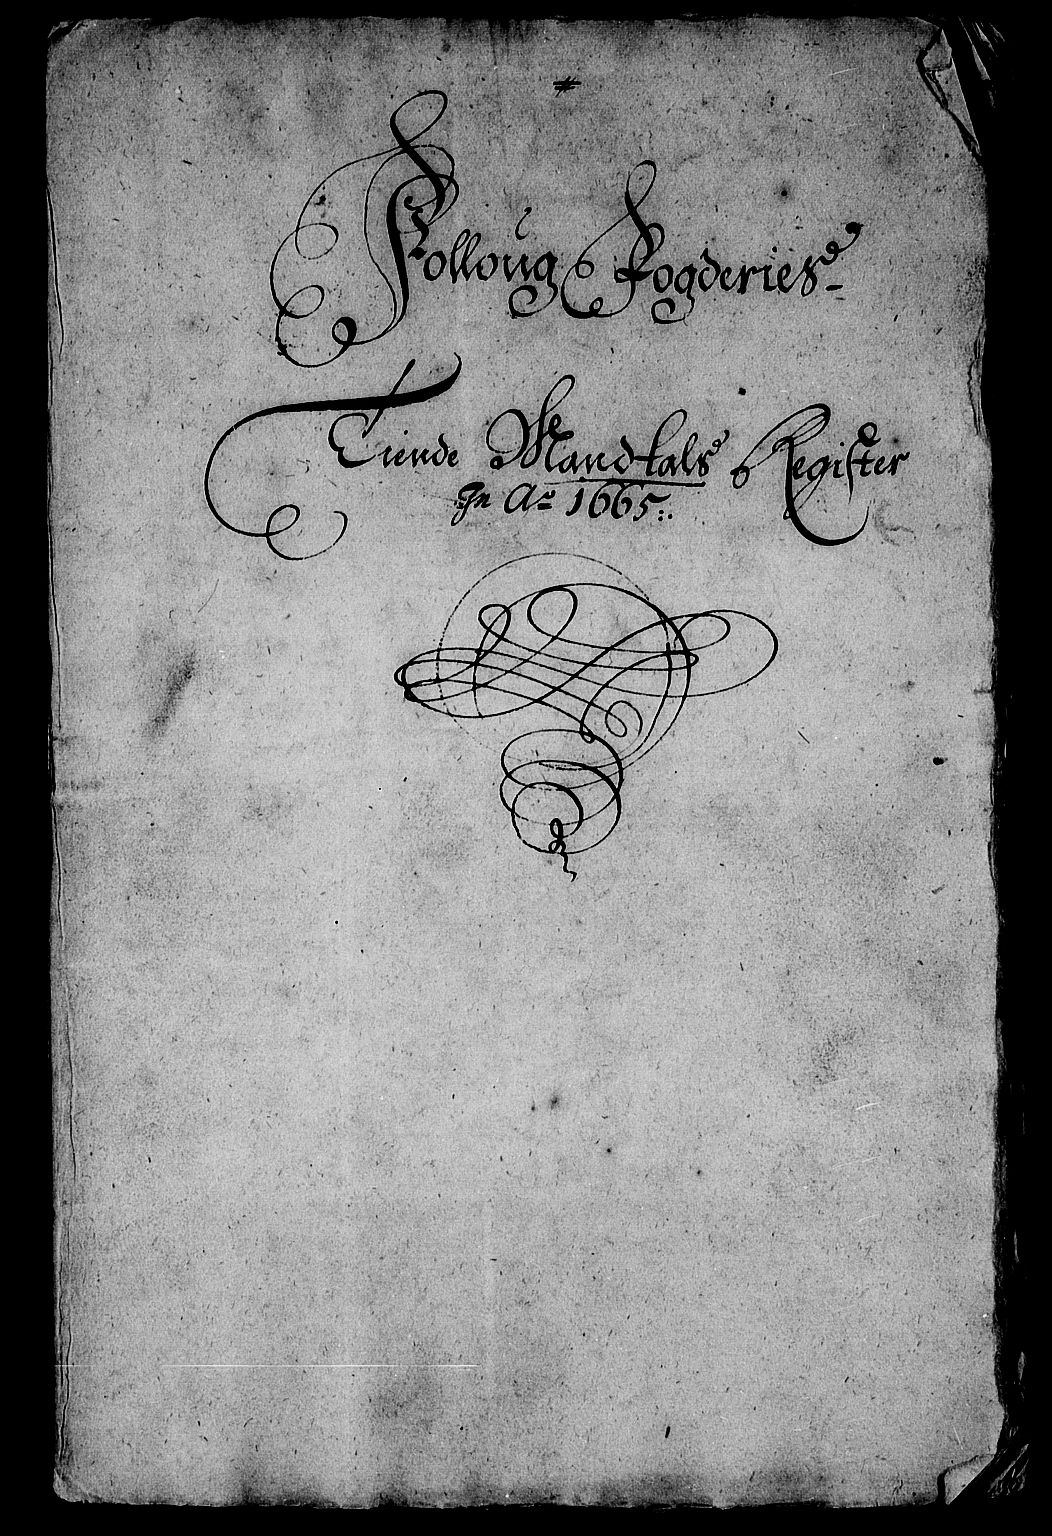 Folloug Fogderies
Tiende Mandtals Register
In Ao 1665